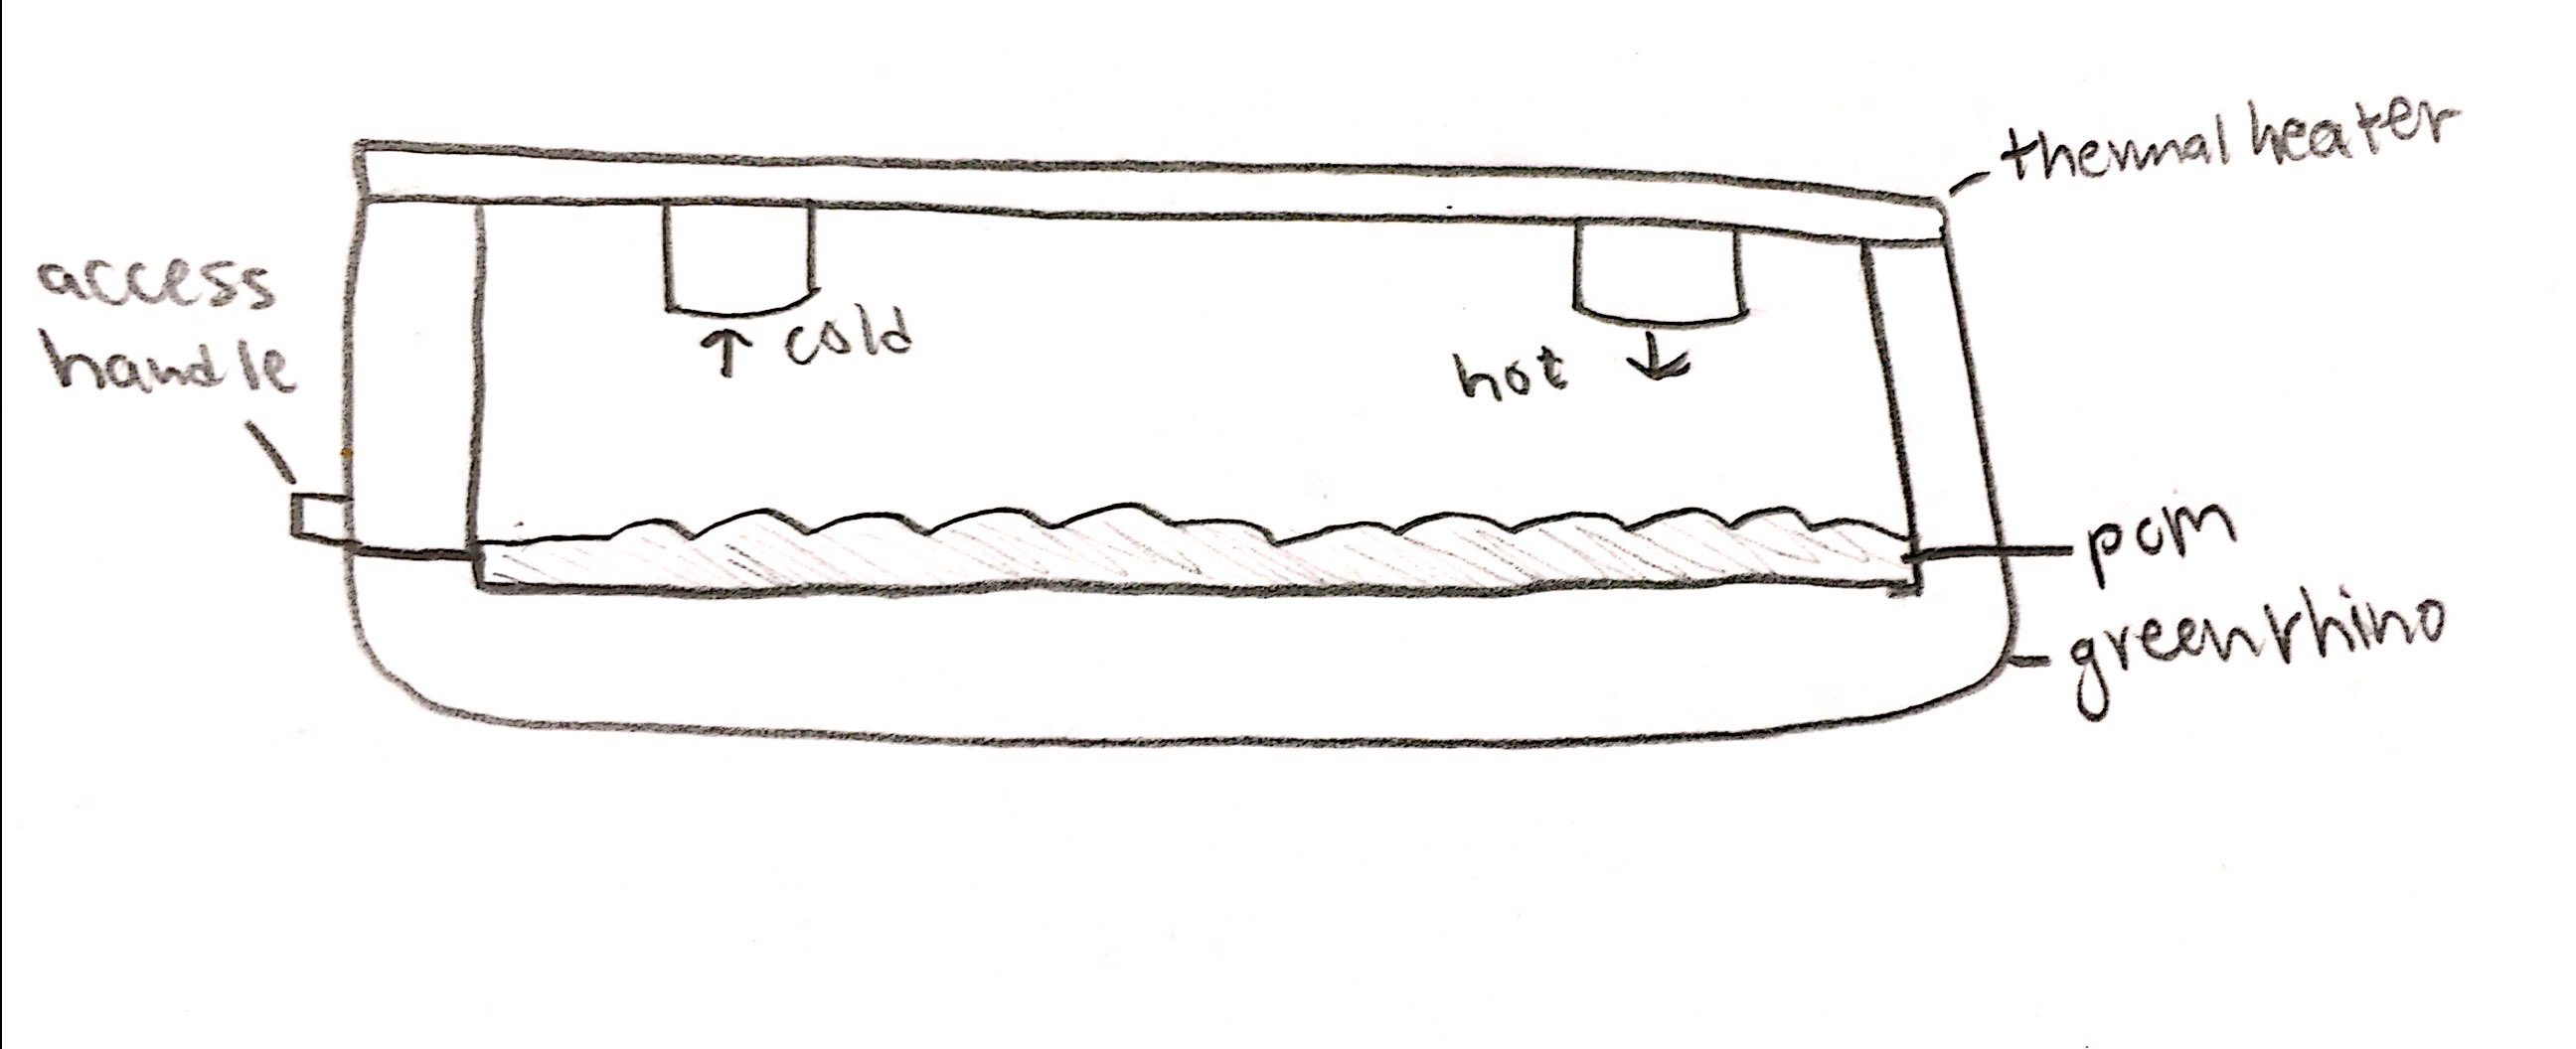 thermal heater
access
handle
↑ cold
hot ↓
pcm
greenrhino